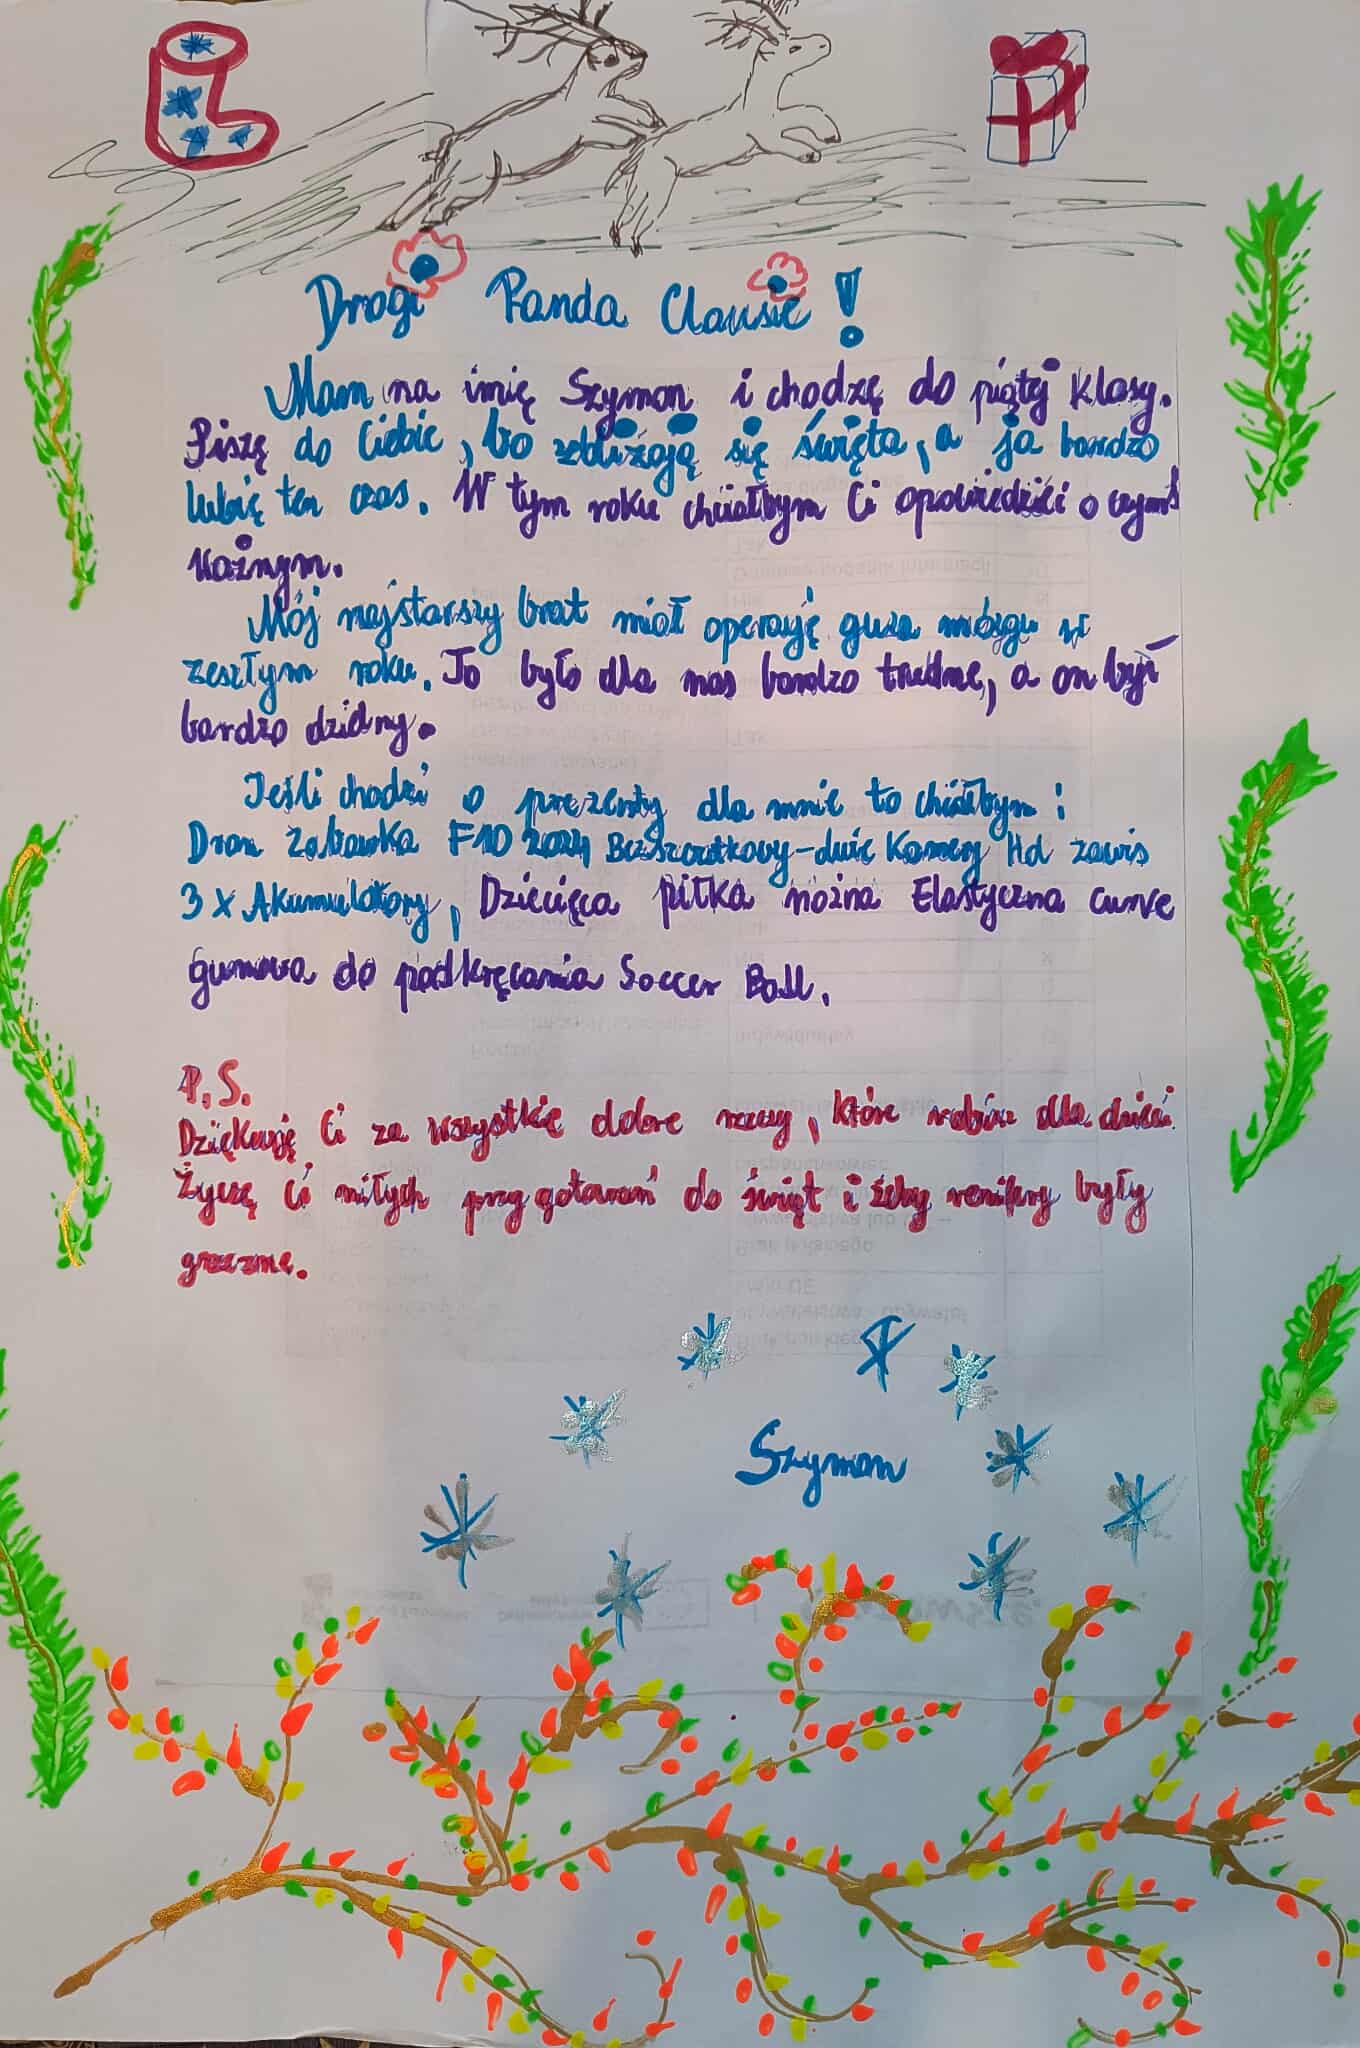 Drogi Panda Clausie!
Mam na imię Szymon i chodzę do piątej klasy.
Piszę do Ciebie, bo zbliżają się święta, a ja bardzo
lubię ten czas. W tym roku chciałbym Ci opowiedzieć o czymś
ważnym.
Mój najstarszy brat miał operację guza mózgu w
zeszłym roku. To było dla nas bardzo trudne, a on był
bardzo dzielny.
Jeśli chodzi o prezenty dla mnie to chciałbym:
Dron Zabawka F10 2024 Bezszczotkowy-dwie Kamery Hd zawis
3 x Akumulatory, Dziecięca piłka nożna Elastyczna curve
gumowa do podkręcania Soccer Ball.
P.S.
Dziękuję Ci za wszystkie dobre rzeczy, które robisz dla dzieci.
Życzę Ci miłych przygotowań do świąt i żeby renifery były
grzeczne.
Szymon